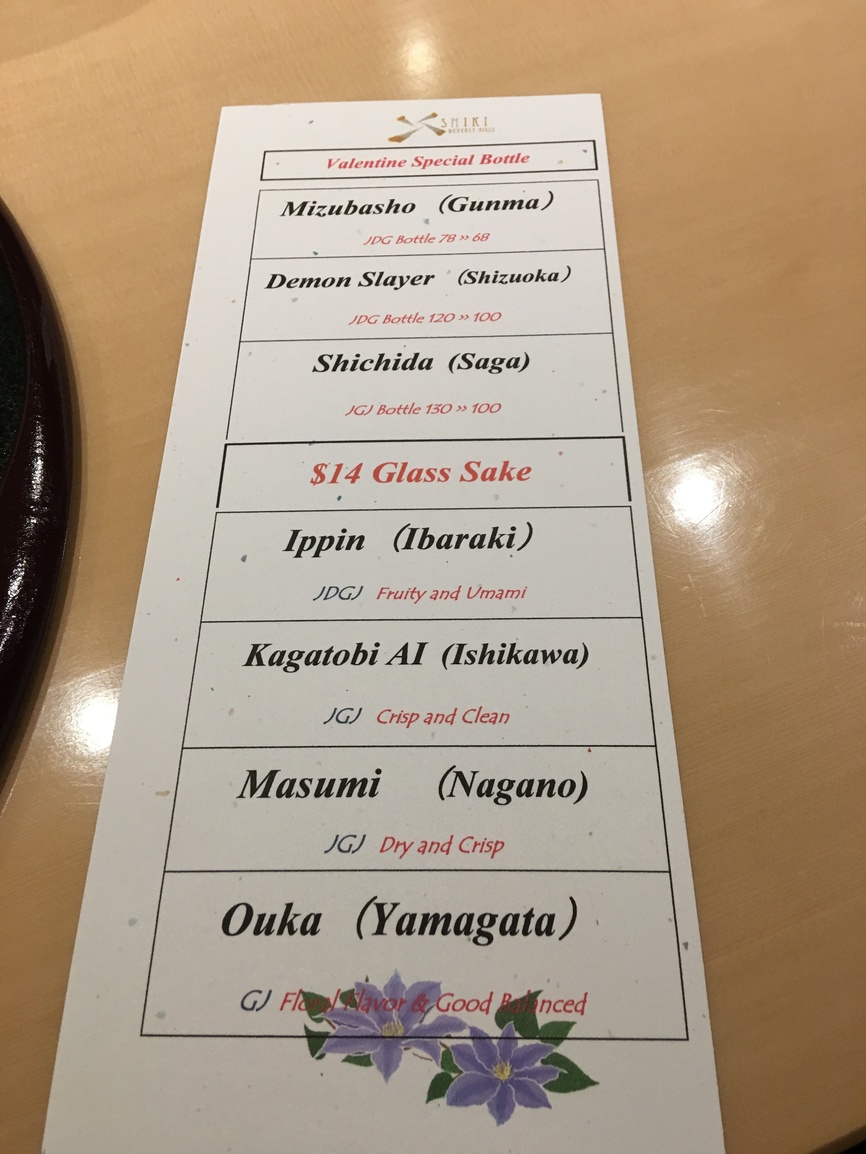 SHIKI
BEVERLY HILLS
Valentine Special Bottle
Mizubasho (Gunma)
JDG Bottle 78 >> 68
Demon Slayer (Shizuoka)
JDG Bottle 120 >> 100
Shichida (Saga)
JGJ Bottle 130 >> 100
$14 Glass Sake
Ippin (Ibaraki)
JDGJ Fruity and Umami
Kagatobi AI (Ishikawa)
JGJ Crisp and Clean
Masumi (Nagano)
JGJ Dry and Crisp
Ouka (Yamagata)
GJ Floral Flavor & Good Balanced